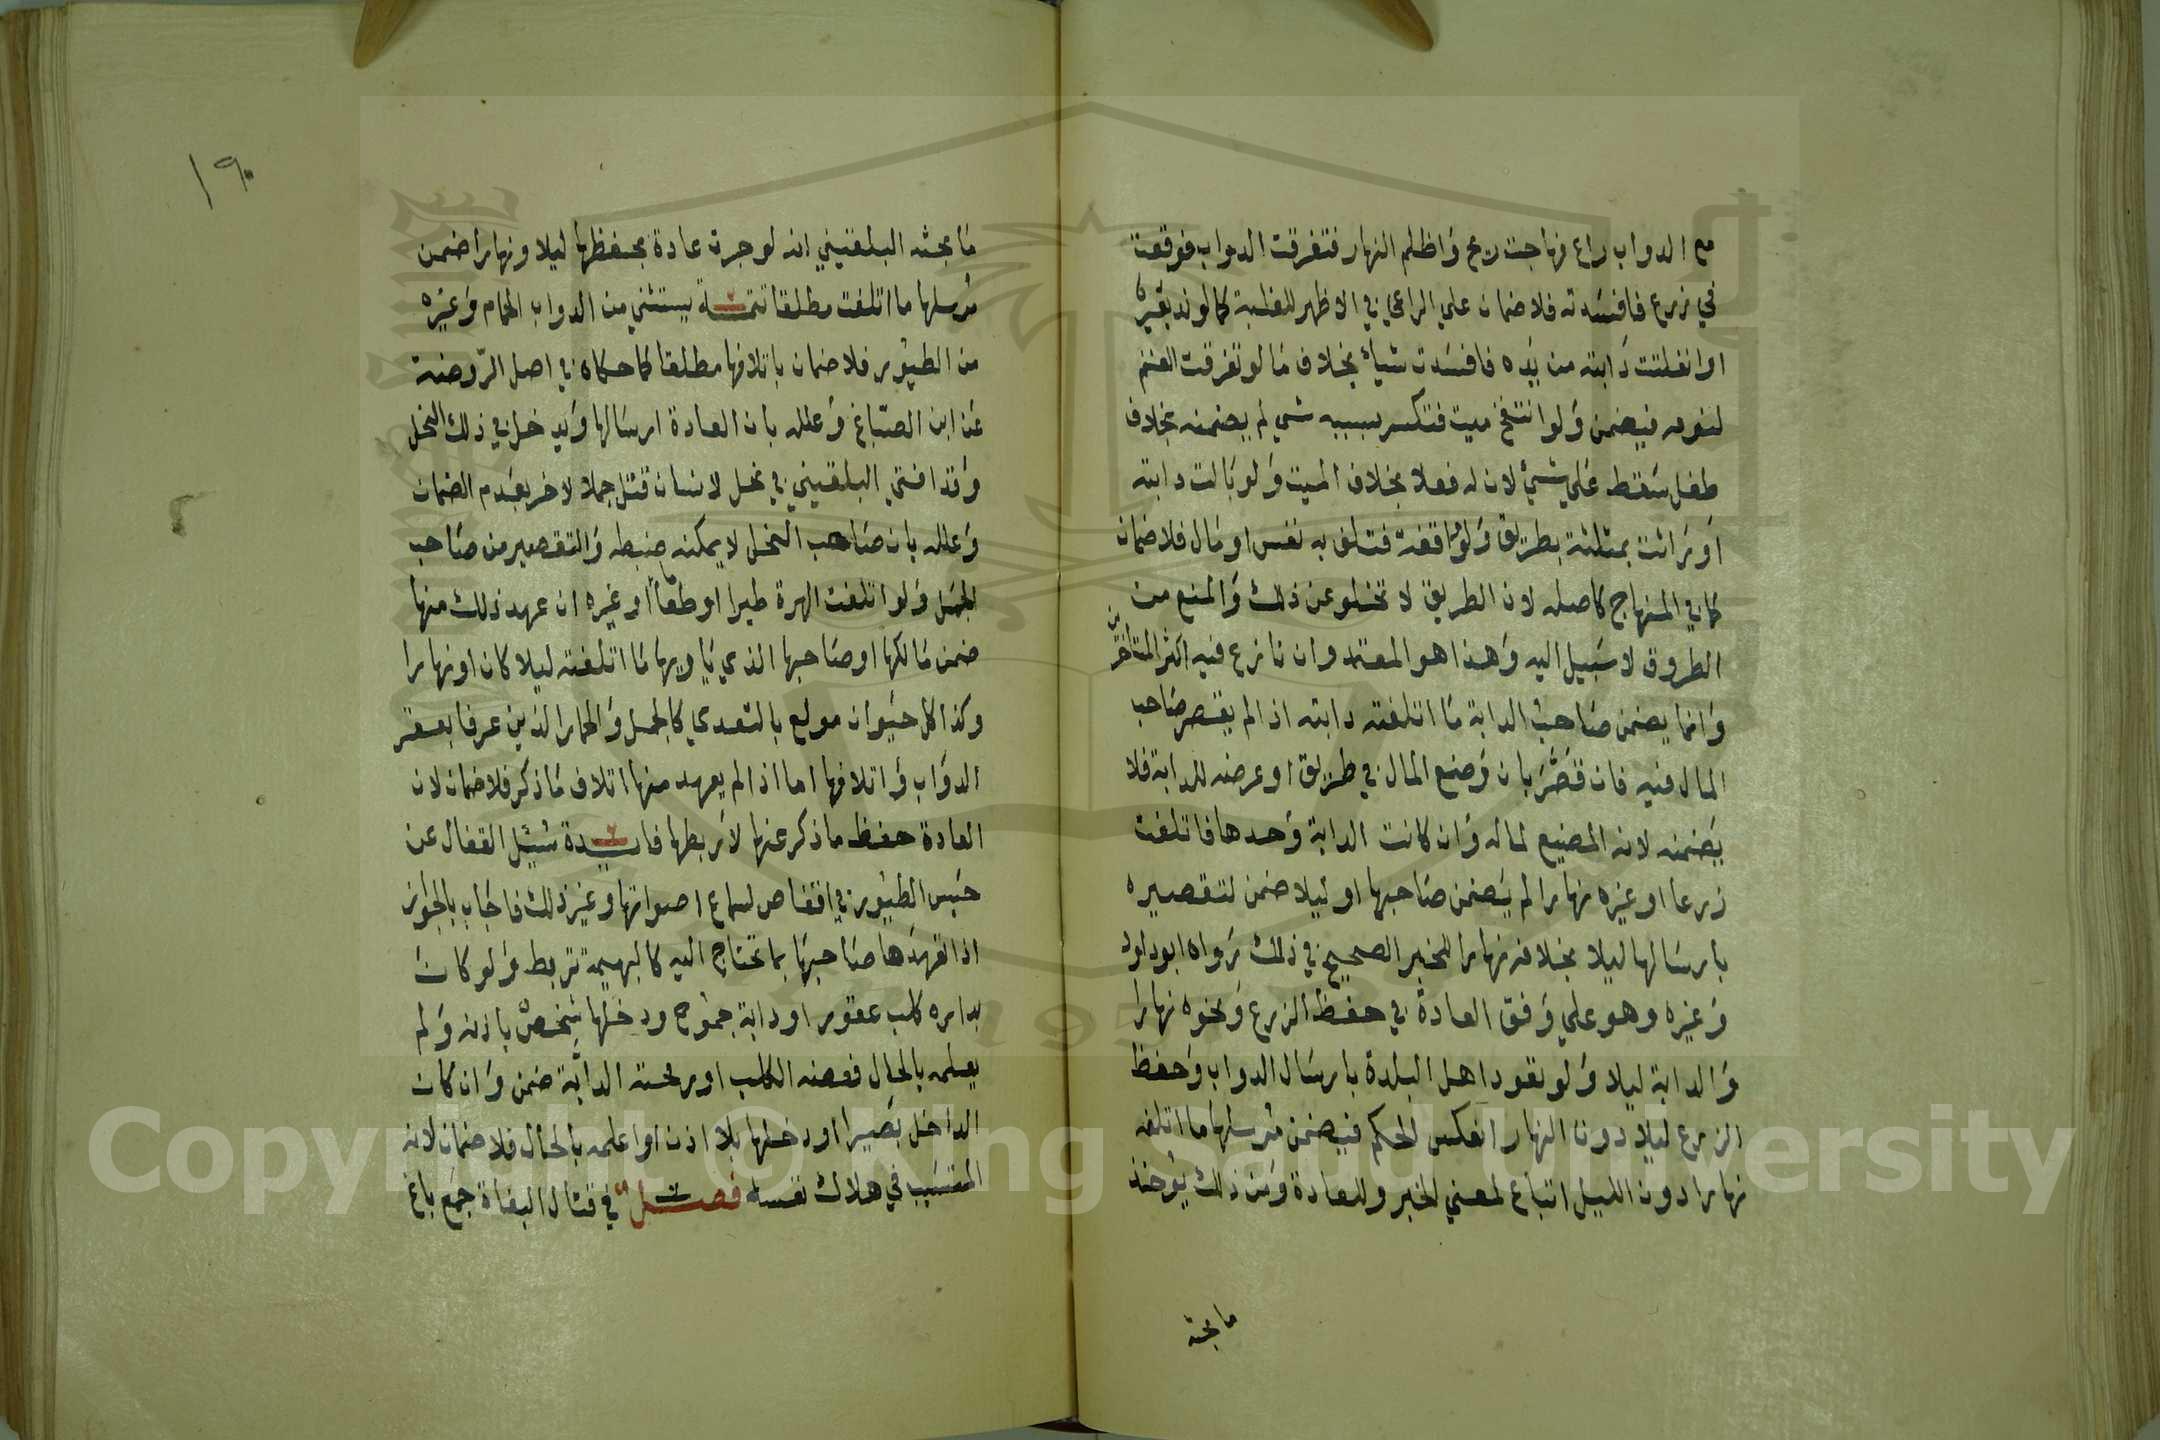 مع الدواب راع فهاجت ريح واظلم النهار فتفرقت الدواب فوقعت
في زرع فافسدته فلا ضمان علي الراعي في الاظهر للغلبة كما لو ند بعيره
او انفلتت دابته من يده فافسدت شيأ بخلاف ما لو تفرقت الغنم
لنومه فيضمن ولو انتفخ ميت فتكسر بسببه شي لم يضمنه بخلاف
طفل سقط علي شيئ لان له فعلا بخلاف الميت ولو بالت دابته
او راثت بمثلثة بطريق ولو واقفة فتلف به نفس او مال فلا ضمان
كما في المنهاج كاصله لان الطريق لا تخلو عن ذلك والمنع من
الطروق لا سبيل اليه وهذا هو المعتمد وان نازع فيه اكثر المتاخرين
وانما يضمن صاحب الدابة ما اتلفته دابته اذا لم يقصر صاحب
المال فيه فان قصر بان وضع المال في طريق او عرضه للدابة فلا
يضمنه لانه المضيع لماله وان كانت الدابة وحدها فاتلفت
زرعا او غيره نهارا لم يضمن صاحبها او ليلا ضمن لتقصيره
بارسالها ليلا بخلافه نهارا للخبر الصحيح في ذلك رواه ابو داود
وغيره وهو علي وفق العادة في حفظ الزرع ونحوه نهارا
والدابة ليلا ولو تعود اهل البلدة بارسال الدواب وحفظ
الزرع ليلا دون النهار انعكس الحكم فيضمن مرسلها ما اتلفه
نهارا دون الليل اتباع لمعني الخبر وللعادة ومن ذلك يؤخذ
ما بحثه
١٩٠
ما بحثه البلقيني انه لو جرت عادة بحفظها ليلا ونهارا ضمن
مرسلها ما اتلفت مطلقا تتمة يستثني من الدواب الحمام وغيره
من الطيور فلا ضمان باتلافها مطلقا كما حكاه في اصل الروضة
عن ابن الصباغ وعلله بان العادة ارسالها ويدخل في ذلك النحل
وقد افتي البلقيني في نحل لانسان قتل جملا لاخر بعدم الضمان
وعلله بان صاحب النحل لا يمكنه ضبطه والتقصير من صاحب
الجمل ولو اتلفت الهرة طيرا او طعاما او غيره ان عهد ذلك منها
ضمن مالكها او صاحبها الذي ياويها ما اتلفته ليلا كان او نهارا
وكذا كل حيوان مولع بالتعدي كالجمل والحمار الذين عرفا بعقر
الدواب واتلافها اما اذا لم يعهد منها اتلاف ما ذكر فلا ضمان لان
العادة حفظ ما ذكر عنها لا ربطها فائدة سئيل القفال عن
حبس الطيور في اقفاص لسماع اصواتها وغير ذلك فاجاب بالجواز
اذا تعهدها صاحبها بما تحتاج اليه كالبهيمة تربط ولو كان
بداره كلب عقور او دابة جموح ودخلها شخص باذنه ولم
يعلمه بالحال فعضه الكلب او رمحته الدابة ضمن وان كان
الداخل بصيرا او دخلها بلا اذن او اعلمه بالحال فلا ضمان لانه
المتسبب في هلاك نفسه فصل في قتال البغاة جمع باغ
Copyright © King Saud University